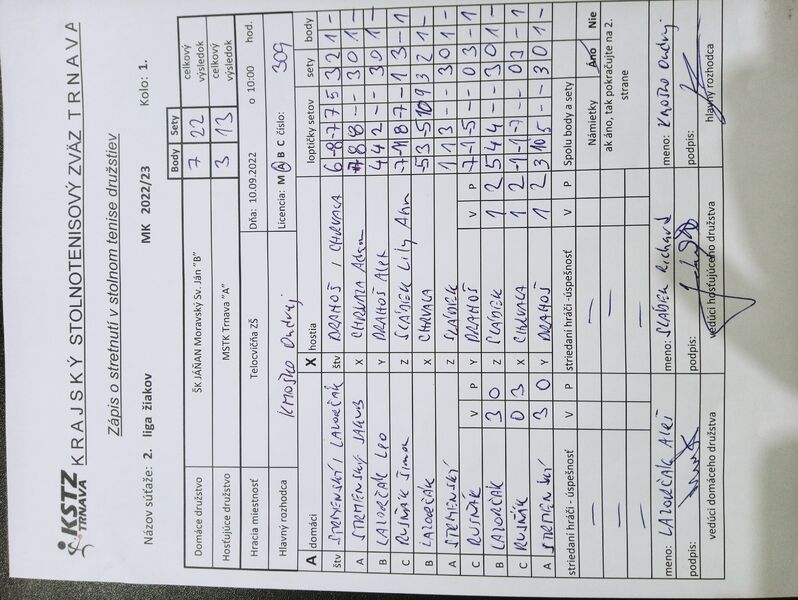 KSTZ
TRNAVA
KRAJSKÝ STOLNOTENISOVÝ ZVÄZ TRNAVA
Zápis o stretnutí v stolnom tenise družstiev
Názov súťaže: 2. liga žiakov MK 2022/23 Kolo: 1.
Body Sety celkový výsledok celkový výsledok
Domáce družstvo ŠK JÁŇAN Moravský Sv. Ján "B" 7 22
Hosťujúce družstvo MSTK Trnava "A" 3 13
Hracia miestnosť Telocvičňa ZŠ Dňa: 10.09.2022 o 10:00 hod.
Hlavný rozhodca Kmoško Ondrej Licencia: M A B C číslo: 309
A domáci X hostia loptičky setov sety body
štv STRMENSKÝ / LAZORČÁK štv DRAHOŠ / CHRVALA 6 -8 -7 7 5 3 2 1 -
A STRMENSKÝ JAKUB X CHRVALA Adam 7 8 8 - - 3 0 1 -
B LAZORČÁK Leo Y DRAHOŠ Alex 4 4 2 - - 3 0 1 -
C RUSŇÁK Šimon Z SLÁDEK Lily Ahn -7 -11 8 -7 - 1 3 - 1
B LAZORČÁK X CHRVALA -5 3 -5 10 9 3 2 1 -
A STRMENSKÝ Z SLÁDEK 1 1 3 - - 3 0 1 -
C RUSŇÁK V P Y DRAHOŠ V P -7 -1 -5 - - 0 3 - 1
B LAZORČÁK 3 0 Z SLÁDEK 1 2 5 4 4 - - 3 0 1 -
C RUSŇÁK 0 3 X CHRVALA 1 2 -1 -1 -7 - - 0 3 - 1
A STRMENSKÝ 3 0 Y DRAHOŠ 1 2 3 10 5 - - 3 0 1 -
striedaní hráči - úspešnosť V P striedaní hráči -úspešnosť V P Spolu body a sety
Námietky Áno Nie
ak áno, tak pokračujte na 2. strane
meno: LAZORČÁK Aleš meno: SLÁDEK Richard meno: Kmoško Ondrej
podpis: podpis: podpis:
vedúci domáceho družstva vedúci hosťujúceho družstva hlavný rozhodca